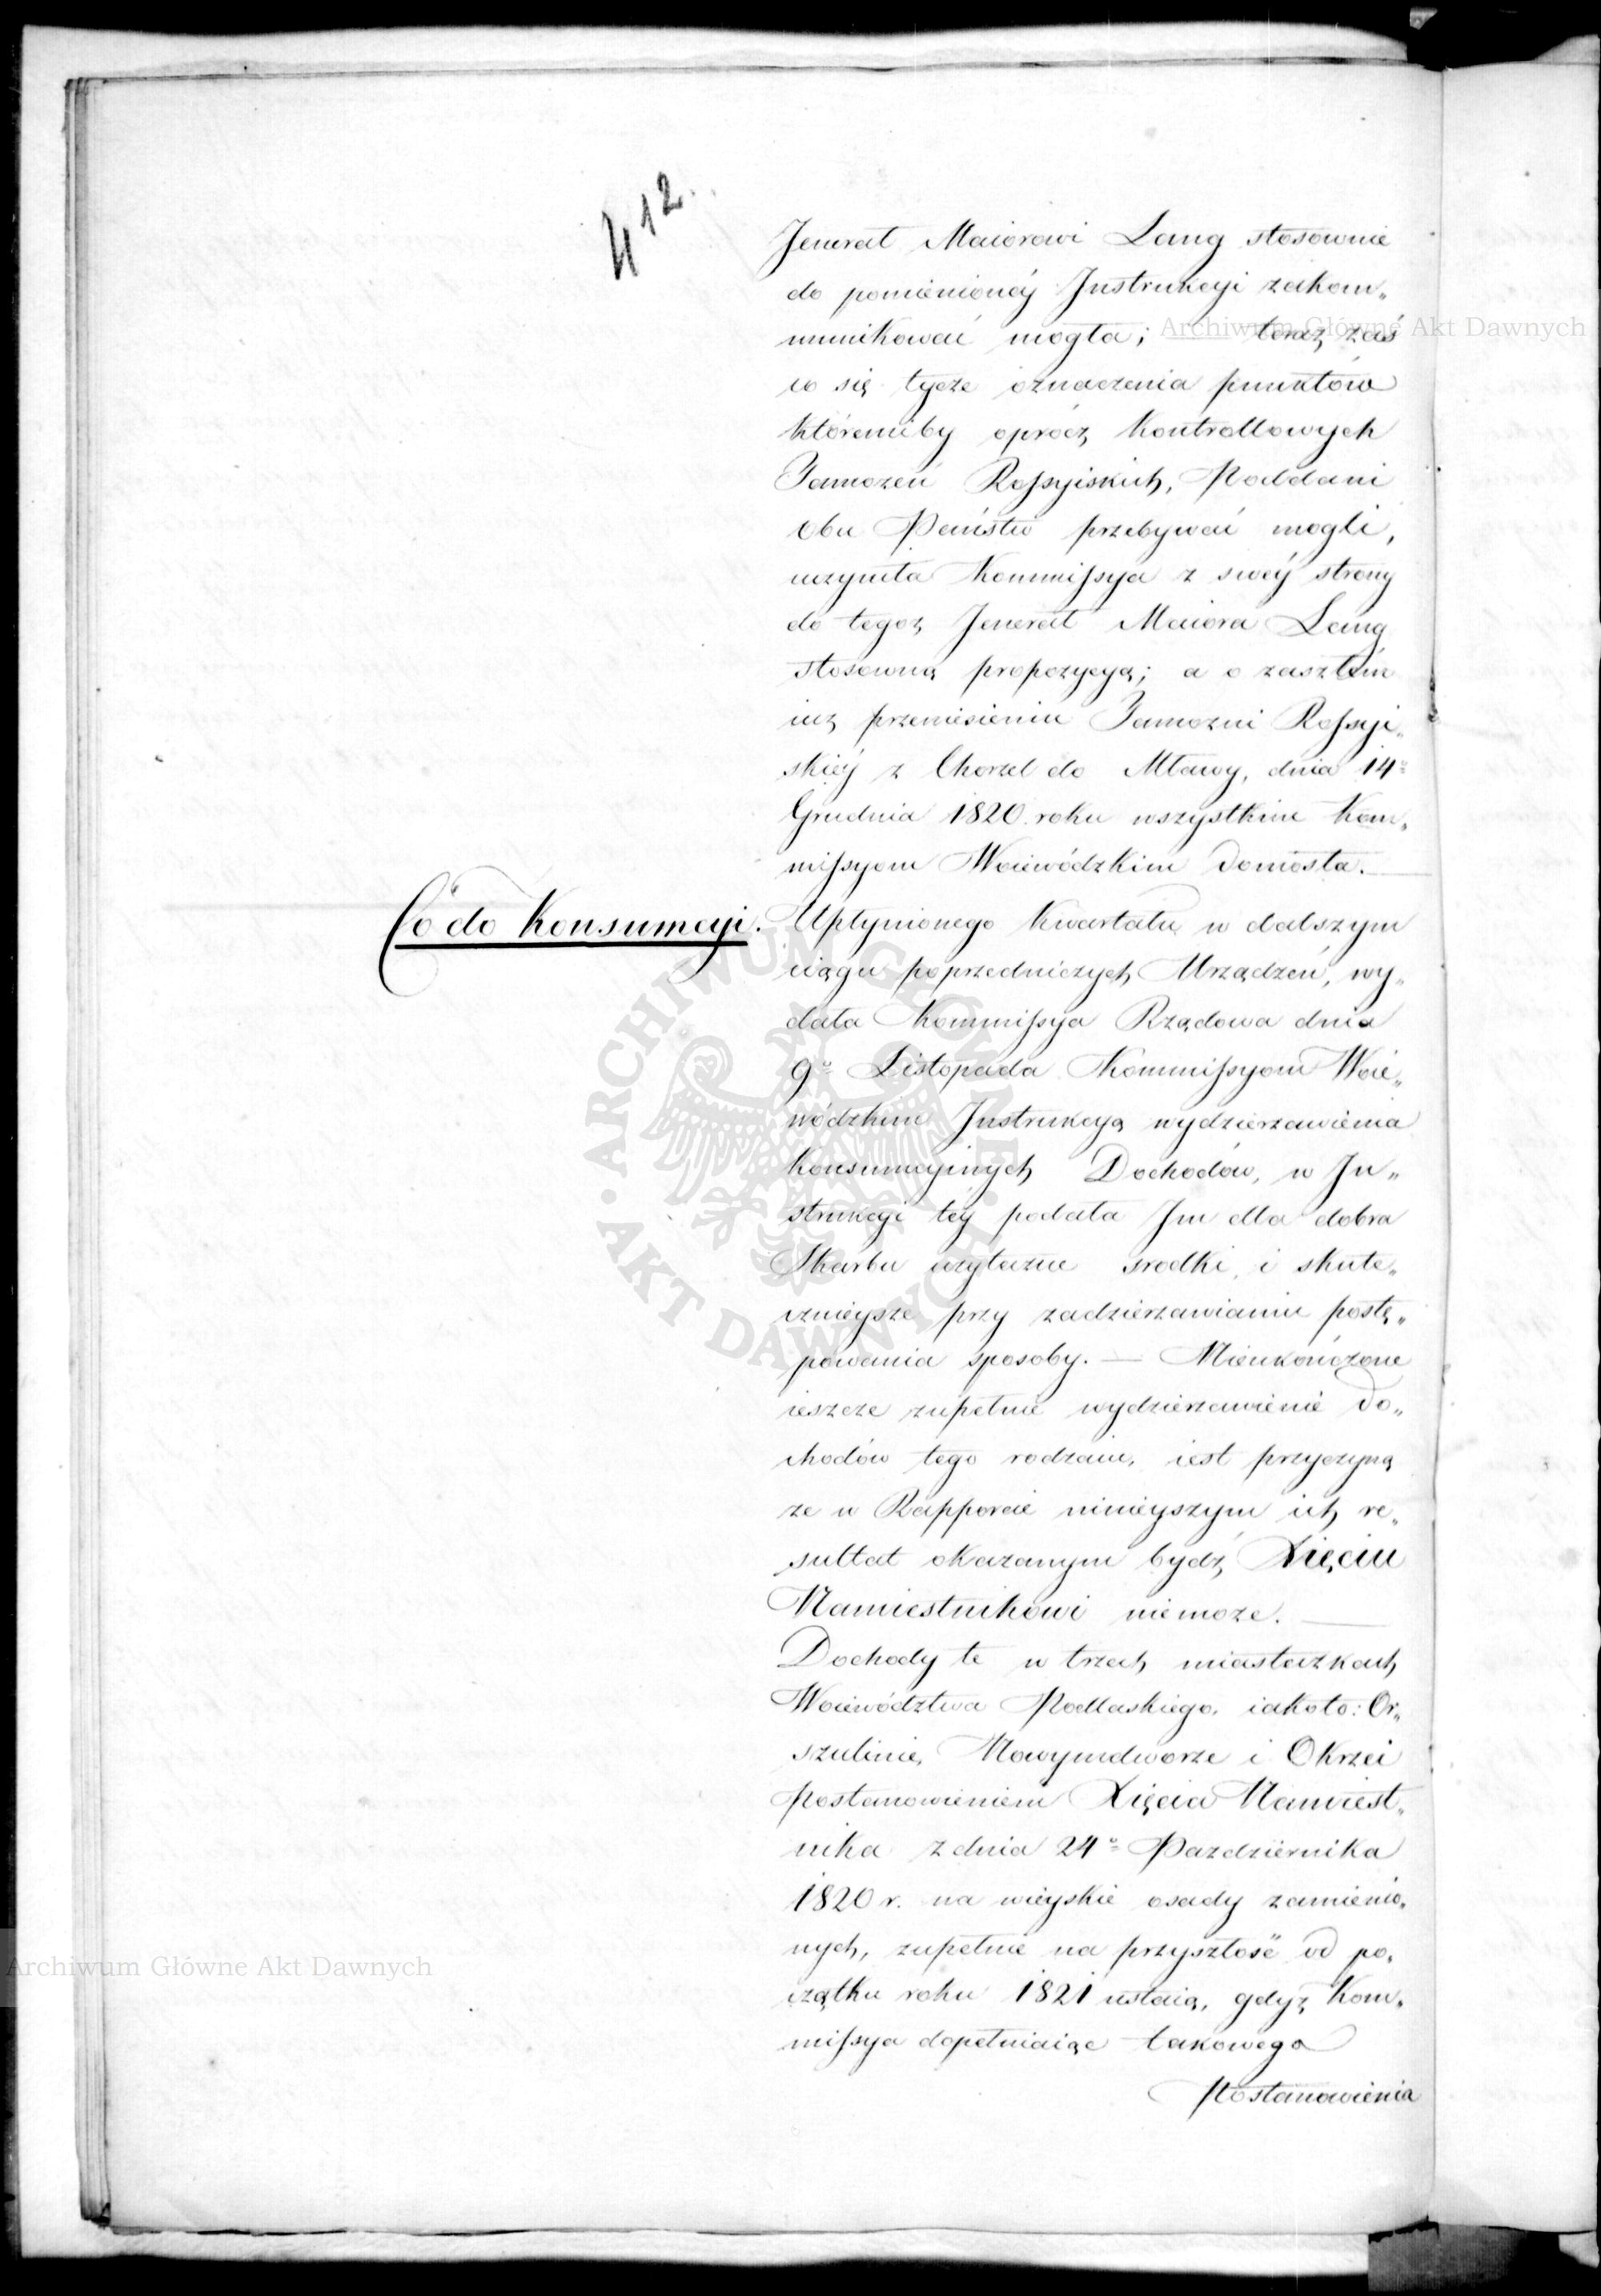 412.
Jenerał Maiorowi Lang stosownie
do pomienionéy Instrukcyi zakom„
munikować mogła; — teraz zaś
co się tycze oznaczenia punktów
któremiby oprócz Kontrollowych
Tamożeń Roſsyiskich, Poddani
Obu Państw przebywać mogli,
uczyniła Kommiſsya z swéy strony
do tegoż Jenerał Maiora Lang
stosowną propozycyą; a o zaszłém
iuż przeniesieniu Tamożni Roſsyi„
skiéy z Chorzel do Mławy, dnia 14º
Grudnia 1820 roku wszystkim Kom„
miſsyom Woiewódzkim doniosła. —
Co do Konsumcyi.
Upłynionego Kwartału w dalszym
ciągu poprzedniczych Urządzeń, wy„
dała Kommiſsya Rządowa dnia
9º Listopada Kommiſsyom Woie„
wódzkim Instrukcyą wydzierzawienia
Konsumcyinych Dochodów, w In„
strukcyi téy podała Im dla dobra
Skarbu użyteczne srodki i skute„
cznieysze przy zadzierzawianiu postę„
powania sposoby. — Nieukończone
ieszcze zupełnie wydzierzawienie Do„
chodów tego rodzaiu, iest przyczyną
ze w Rapporcie ninieyszym ich re„
sultat okazanym bydź Xięciu
Namiestnikowi niemoze. —
Dochody te w trzech miasteczkach
Woiewództwa Podlaskiego, iakoto: Or„
szulinie, Nowymdworze i Okrzei
Postanowieniem Xięcia Namiest„
nika z dnia 24º Pazdziernika
1820 r. na wieyskie osady zamienio„
nych, zupełnie na przyszłość od po„
czątku roku 1821 ustaią, gdyż Kom„
miſsya dopełniaiąc takowego
Postanowienia
Archiwum Główne Akt Dawnych
Archiwum Główne Akt Dawnych
ARCHIWUM GŁÓWNE AKT DAWNYCH